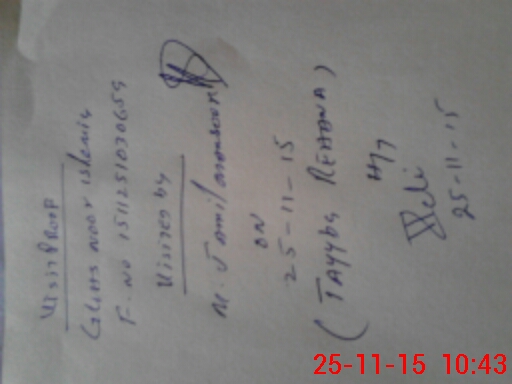 Visit Proof
Glims noor islamic
F. No 1511251030659
Visited by
M. Jamil
on
25-11-15
(TAYYBA REHANA)
25-11-15
25-11-15 10:43